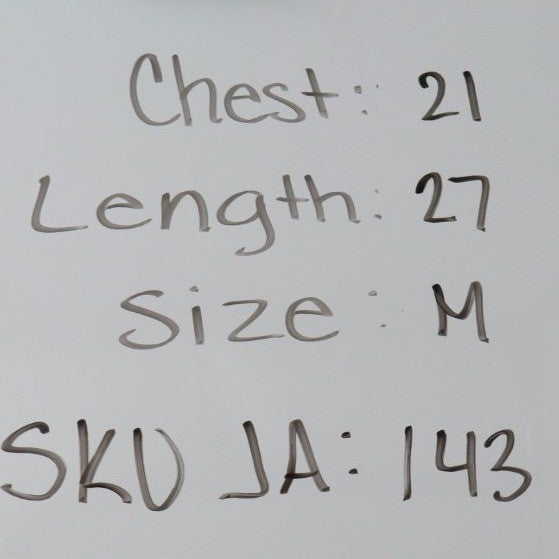 Chest: 21
Length: 27
Size: M
SKU JA: 143